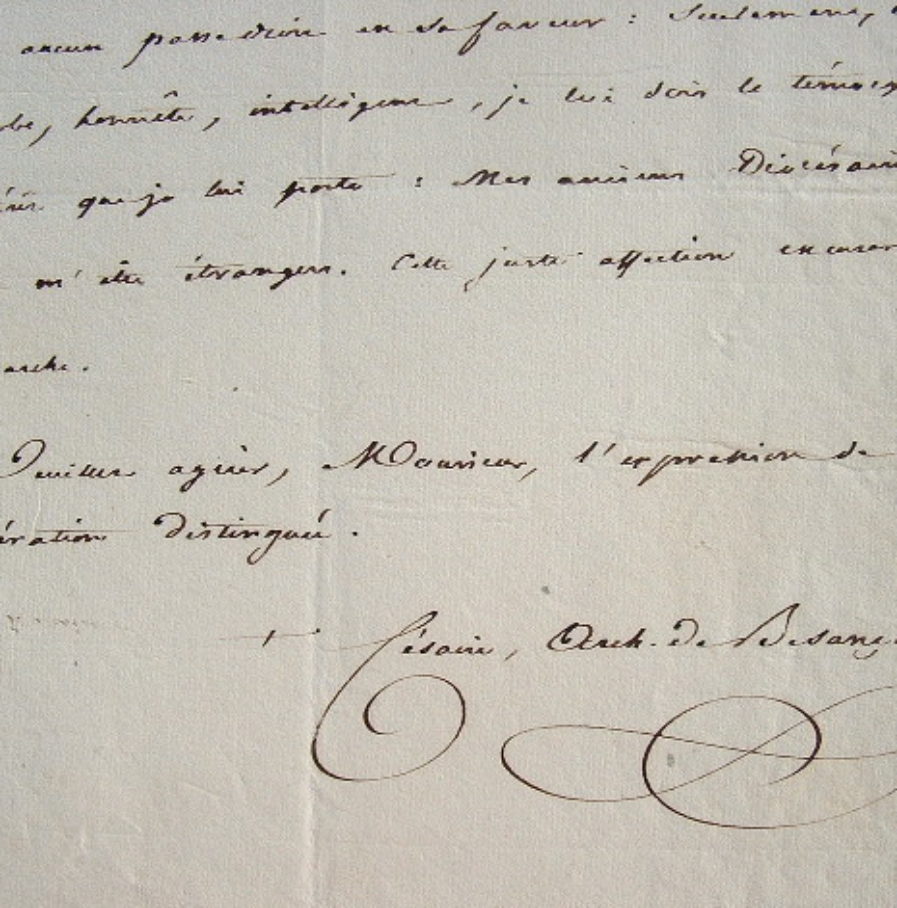 aucun passe-droit en sa faveur : Seulement,
honnête, intelligent, je lui dois le témoig
que je lui porte : Mes anciens Diocésain
m'être étrangers. Cette juste affection excuser
arche.
Veuillez agréer, Monsieur, l'expression de
ération distinguée.
+ Césaire, Arch. de Besanç